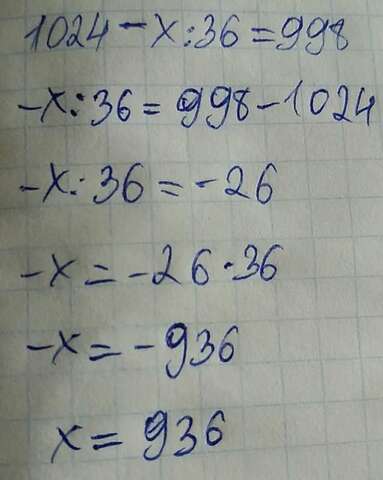 1024-x:36=998
-x:36=998-1024
-x:36=-26
-x=-26·36
-x=-936
x=936